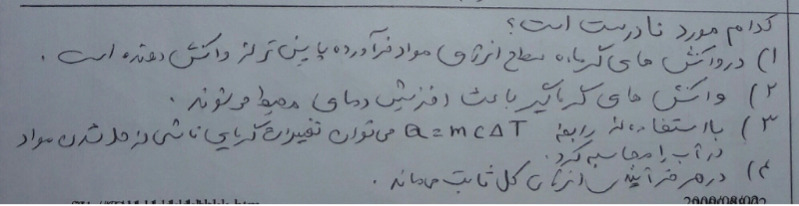 کدام مورد نادرست است؟
۱) در واکنش های گرماده سطح انرژی مواد فرآورده پایین تر از واکنش دهنده است.
۲) واکنش های گرماگیر باعث افزایش دمای محیط می شوند.
۳) با استفاده از رابطه Q = mcΔT می توان تغییرات گرمایی ناشی از حل شدن مواد
در آب را محاسبه کرد.
۴) در هر فرآیند انرژی کل ثابت می ماند.